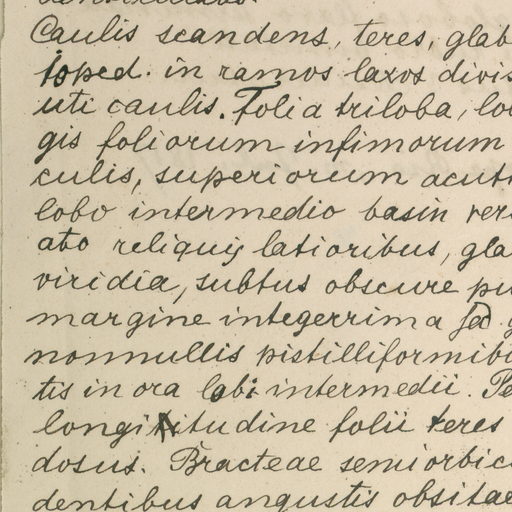 Caulis scandens, teres, glab
joped. in ramos laxos divis
uti caulis. Folia triloba, lo
gis foliorum infimorum
culis, superiorum acuti
lobo intermedio basin vers
ato reliquis latioribus, gla
viridia, subtus obscure pu
margine integerrima sed g
nonnullis pistilliformibu
tis in ora lobi intermedii. Pe
longitudine folii teres
dosus. Bracteae semiorbic
dentibus angustis obsitae